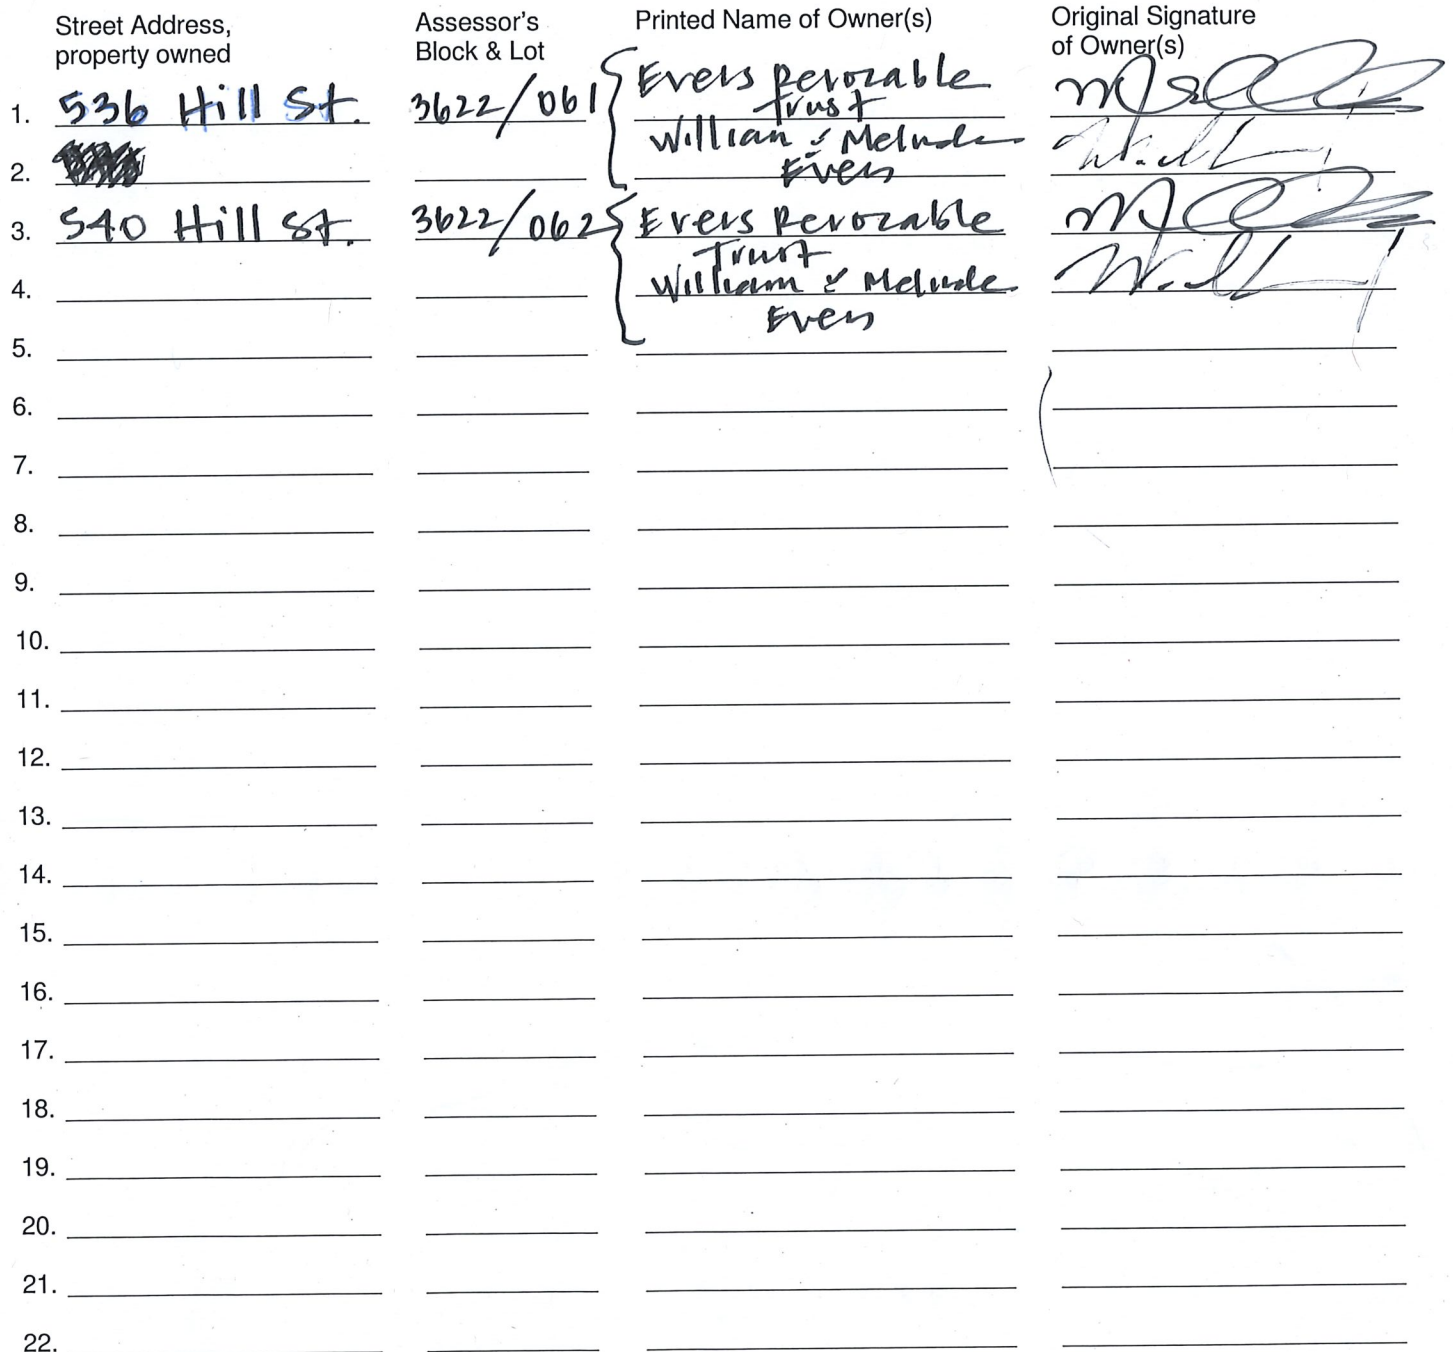 Street Address,
property owned
Assessor's
Block & Lot
Printed Name of Owner(s)
Original Signature
of Owner(s)
1. 536 Hill St. 3622/061 Evers Revocable
Trust
William & Melinda
Evers
2.
3. 540 Hill St. 3622/062 Evers Revocable
Trust
William & Melinda
Evers
4.
5.
6.
7.
8.
9.
10.
11.
12.
13.
14.
15.
16.
17.
18.
19.
20.
21.
22.